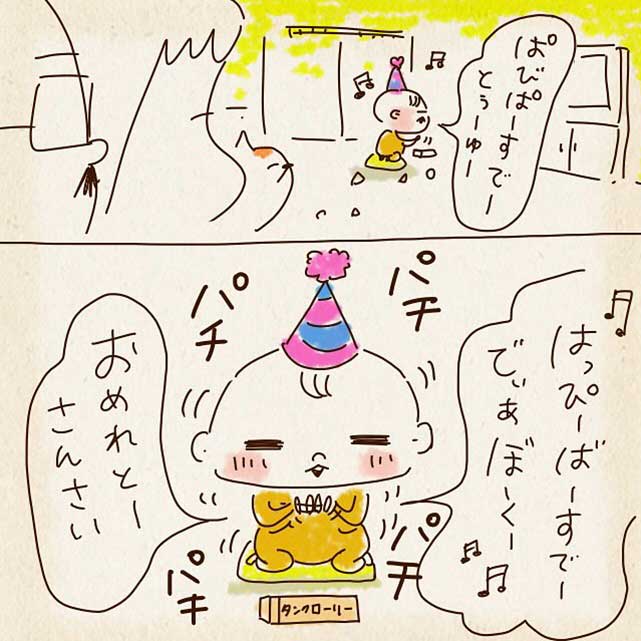 ぱぴぱーすでー
とぅーゆー
はっぴーばーすでー
でぃあぼーくー
パチ
パチ
おめれとー
さんさい
パチ
パチ
タンクローリー